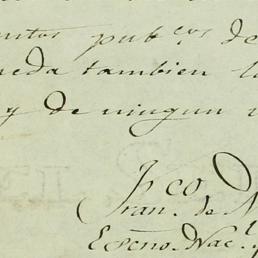 entos pub.cos de
ueda tambien la
y de ningun v
Fco
Fran. de N
Escno. Nac.l